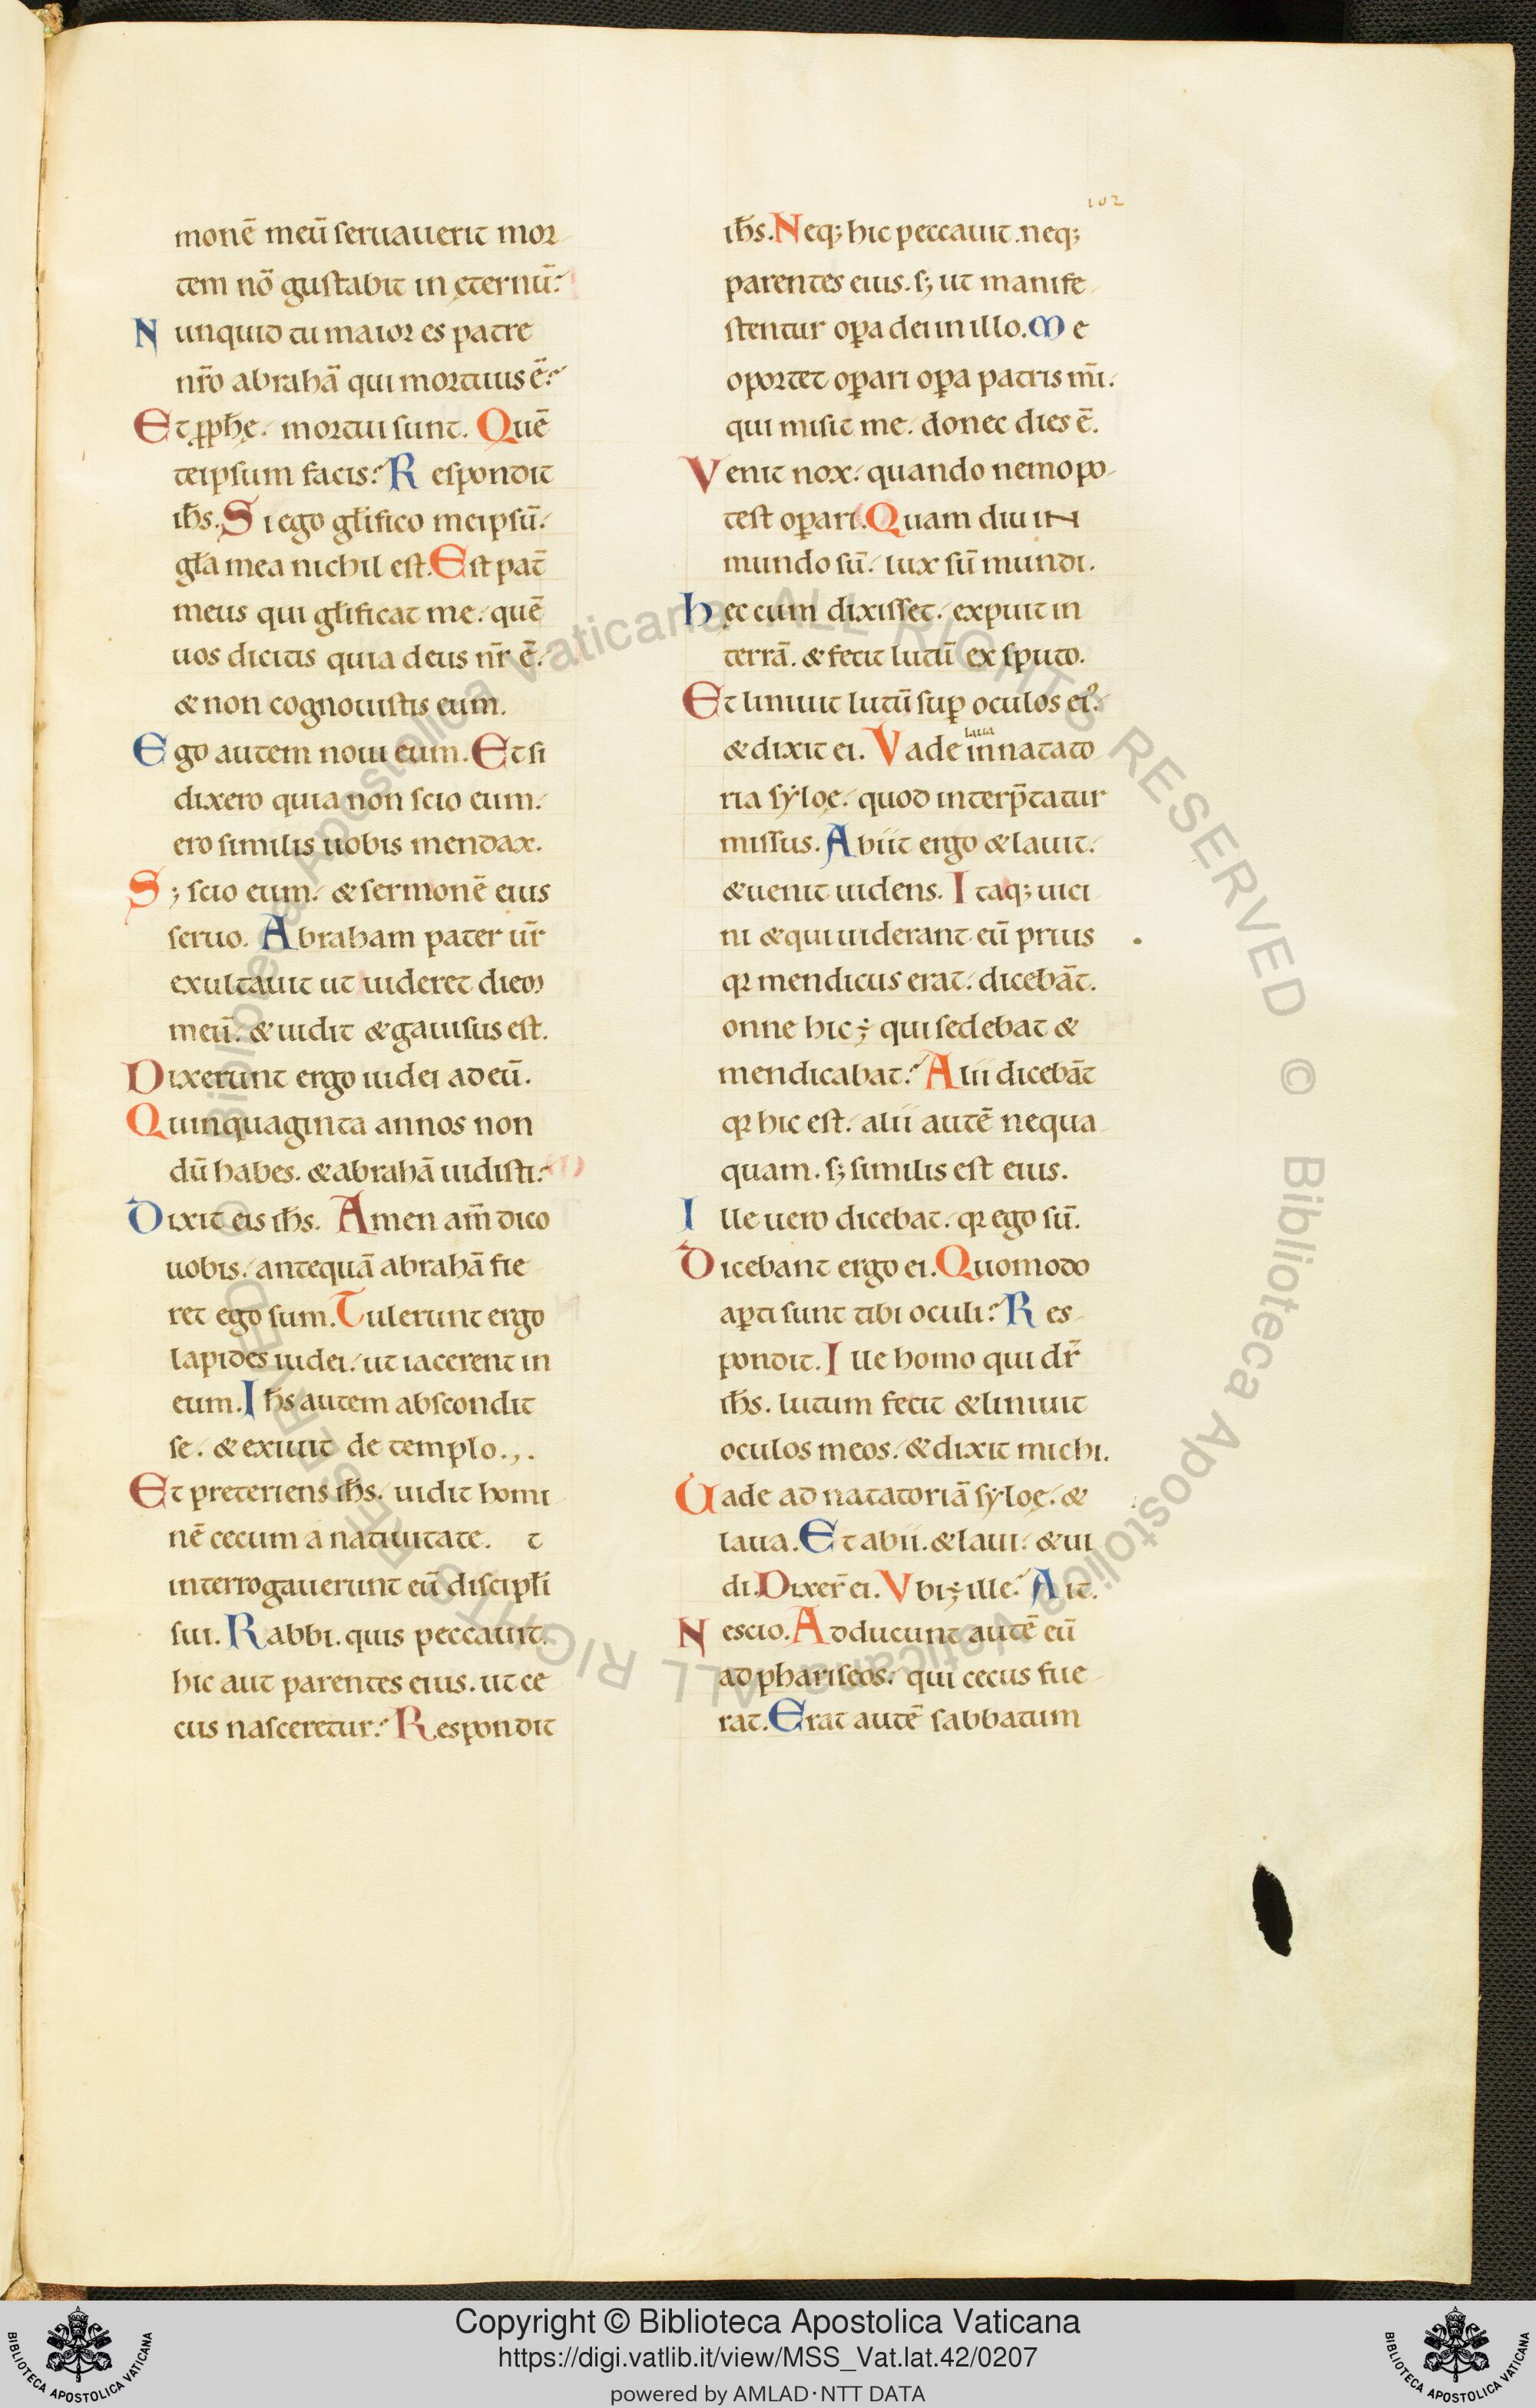 102
monē meū seruauerit mor
tem nō gustabit in ęternū.
Nunquid tu maior es patre
nr̄o abrahā qui mortuus ē.
Et ꝓph̄ę. mortui sunt. Quē
teipsum facis. Respondit
ih̄s. Si ego gl̄ifico meipsū.
gl̄a mea nichil est. Est pat̄
meus qui gl̄ificat me. quē
uos dicitis quia deus nr̄ ē.
& non cognouistis eum.
Ego autem noui eum. Et si
dixero quia non scio eum.
ero similis uobis mendax.
S; scio eum. & sermonē eius
seruo. Abraham pater ur̄
exultauit ut uideret diem
meū. & uidit & gauisus est.
Dixerunt ergo iudei ad eū.
Quinquaginta annos non
dū habes. & abrahā uidisti.
Dixit eis ih̄s. Amen am̄ dico
uobis. antequā abrahā fie
ret ego sum. Tulerunt ergo
lapides iudei. ut iacerent in
eum. Ih̄s autem abscondit
se. & exiuit de templo.,.
Et preteriens ih̄s. uidit homi
nē cecum a natiuitate. t
interrogauerunt eū discipl̄i
sui. Rabbi. quis peccauit.
hic aut parentes eius. ut ce
cus nasceretur. Respondit
ih̄s. Neq; hic peccauit. neq;
parentes eius. s; ut manife
stentur oꝑa dei in illo. Me
oportet oꝑari oꝑa patris m̄i.
qui misit me. donec dies ē.
Venit nox. quando nemo po
test oꝑari. Quam diu in
mundo sū. lux sū mundi.
Hęc cum dixisset. expuit in
terrā. & fecit lutū ex sputo.
Et liniuit lutū suꝑ oculos eiꝰ.
laua
& dixit ei. Vade in natato
ria syloę. quod interp̄tatur
missus. Abiit ergo & lauit.
& uenit uidens. Itaq; uici
ni & qui uiderant eū prius
qꝛ mendicus erat. dicebāt.
onne hic ÷ qui sedebat &
mendicabat. Alii dicebāt
qꝛ hic est. alii autē nequa
quam. s; similis est eius.
Ille uero dicebat. qꝛ ego sū.
Dicebant ergo ei. Quomodo
aꝑti sunt tibi oculi. Res
pondit. Ille homo qui dr̄
ih̄s. lutum fecit & liniuit
oculos meos. & dixit michi.
Vade ad natatoriā syloę. &
laua. Et abii. & laui. & ui
di. Dixer̄ ei. Vbi ÷ ille. Ait.
Nescio. Adducunt autē eū
ad phariseos. qui cecus fue
rat. Erat autē sabbatum
© Biblioteca Apostolica Vaticana ALL RIGHTS RESERVED © Biblioteca Apostolica Vaticana ALL RIGHTS RESERVED
BIBLIOTECA APOSTOLICA VATICANA
Copyright © Biblioteca Apostolica Vaticana
https://digi.vatlib.it/view/MSS_Vat.lat.42/0207
powered by AMLAD·NTT DATA
BIBLIOTECA APOSTOLICA VATICANA